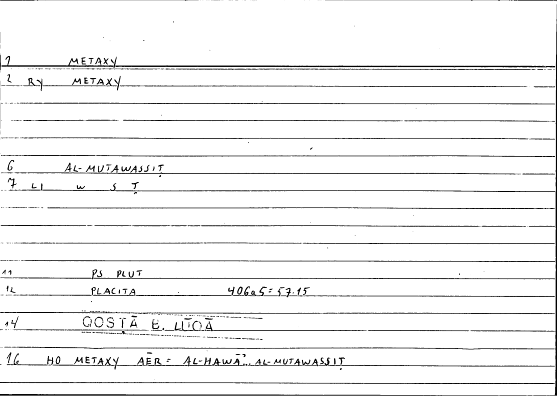 1 METAXY
2 RY METAXY
6 AL-MUTAWASSIṬ
7 LI W S Ṭ
11 PS PLUT
12 PLACITA 406a5=57.15
14 QOSṬĀ B. LŪQĀ
16 HO METAXY AĒR = AL-HAWĀʾ... AL-MUTAWASSIṬ